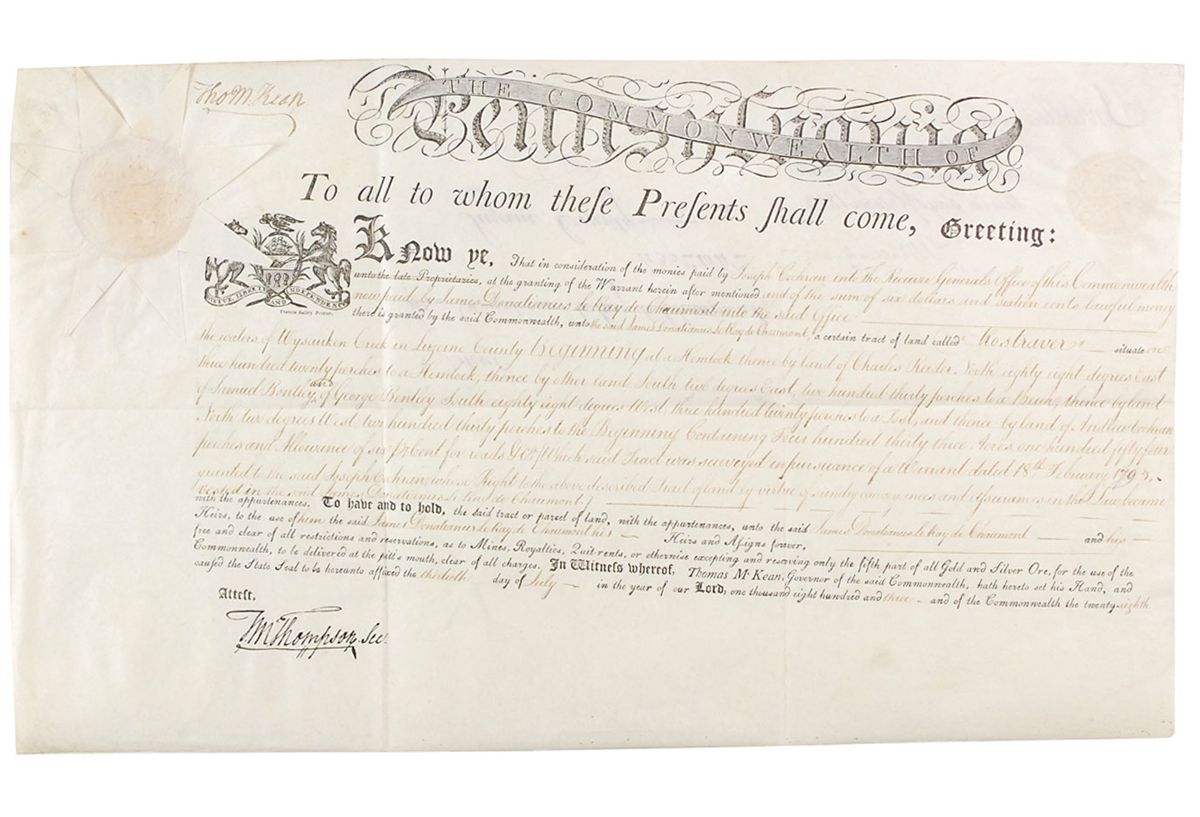 Tho M:Kean
THE COMMONWEALTH OF
Pennsylvania
To all to whom theſe Preſents ſhall come, Greeting:
Know ye, That in conſideration of the monies paid by Joseph Cochran into the Receiver Generals Office of this Commonwealth
unto the late Proprietaries, at the granting of the Warrant herein after mentioned and of the sum of six dollars and sixteen cents lawful money
now paid by James Donatianus Le Ray de Chaumont into the said Office
there is granted by the ſaid Commonwealth, unto the said James Donatianus Le Ray de Chaumont, a certain tract of land called "Rostraver" situate on
the waters of Wysauken Creek in Luzerne County Beginning at a Hemlock thence by land of Charles Reeder North eighty eight degrees East
three hundred twenty perches to a Hemlock, thence by other land South two degrees East, two hundred thirty perches to a Beech, thence by land
of Samuel Bentley and of George Bentley South eighty eight degrees West three hundred twenty perches to a Post, and thence by land of Andrew Cochran
North two degrees West two hundred thirty perches to the Beginning Containing Four hundred thirty three Acres one hundred fifty four
perches and Allowance of six ₱ Cent for roads &c. (Which said Tract was surveyed in pursuance of a Warrant dated 18th February 1793.
granted to the said Joseph Cochran, whose Right to the above described Tract of land by virtue of sundry conveyances and Assurances in the Law became
vested in the said James Donatianus Le Ray de Chaumont)
with the appurtenances. To have and to hold, the ſaid tract or parcel of land, with the appurtenances, unto the ſaid James Donatianus Le Ray de Chaumont and his
Heirs, to the uſe of him the ſaid James Donatianus Le Ray de Chaumont his Heirs and Aſſigns forever,
free and clear of all reſtrictions and reſervations, as to Mines, Royalties, Quit rents, or otherwiſe excepting and reſerving only the fifth part of all Gold and Silver Ore, for the uſe of the
Commonwealth, to be delivered at the pitt's mouth, clear of all charges. In Witneſs whereof, Thomas M·Kean, Governor of the ſaid Commonwealth, hath hereto ſet his Hand, and
cauſed the State Seal to be hereunto affixed the thirtieth day of July in the year of our Lord, one thouſand eight hundred and three and of the Commonwealth the twenty eighth
Atteſt,
T M Thompson Secy
VIRTUE, LIBERTY AND INDEPENDENCE
Francis Bailey Printer.